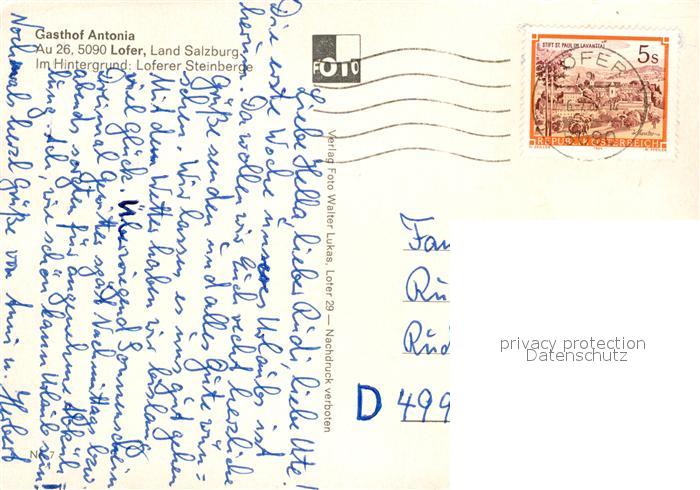 Gasthof Antonia
Au 26, 5090 Lofer, Land Salzburg
Im Hintergrund: Loferer Steinberge
FOTO
Verlag Foto Walter Lukas, Lofer 29 — Nachdruck verboten
STIFT ST. PAUL IM LAVANTTAL
5s
REPUBLIK ÖSTERREICH
LOFER
5090
Liebe Hella, lieber Rudi, liebe Ute!
Die erste Woche unseres Urlaubs ist
herum. Da wollen wir Euch recht herzliche
Grüße senden und alles Gute wün-
schen. Wir lassen es uns gut gehen
Mit dem Wetter haben wir bislang
viel Glück. Überwiegend Sonnenschein
Dreimal Gewitter spät Nachmittags bzw.
abends sorgten für angenehme Abküh-
lung. Ach, wie schön kann Urlaub sein!
Nochmals herzl. Grüße von Anni u. Herbert
Fam
Ru
Rud
D 499
privacy protection
Datenschutz